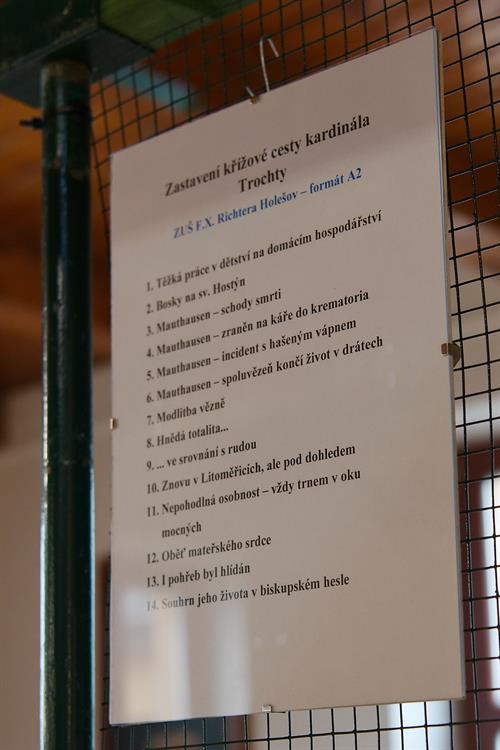 Zastavení křížové cesty kardinála
Trochty
ZUŠ F.X. Richtera Holešov – formát A2
1. Těžká práce v dětství na domácím hospodářství
2. Bosky na sv. Hostýn
3. Mauthausen – schody smrti
4. Mauthausen – zraněn na káře do krematoria
5. Mauthausen – incident s hašeným vápnem
6. Mauthausen – spoluvězeň končí život v drátech
7. Modlitba vězně
8. Hnědá totalita...
9. ... ve srovnání s rudou
10. Znovu v Litoměřicích, ale pod dohledem
11. Nepohodlná osobnost – vždy trnem v oku
mocných
12. Oběť mateřského srdce
13. I pohřeb byl hlídán
14. Souhrn jeho života v biskupském hesle